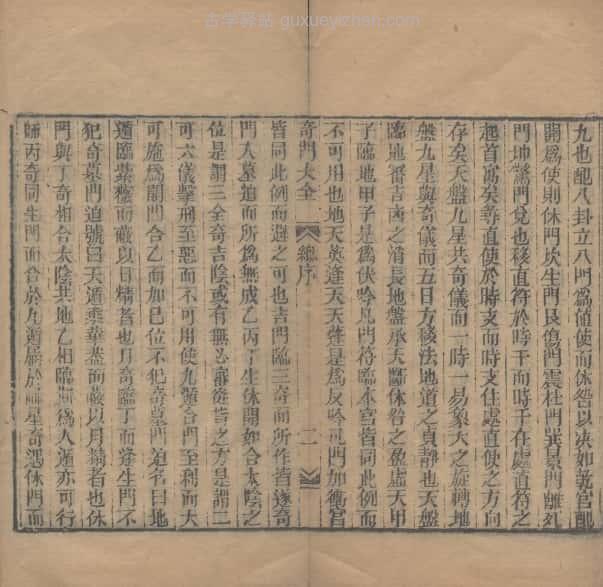 古学驿站 guxueyizhen.com
九也配八卦立八門爲値使而休咎以决如乾官配
開爲使則休門坎生門艮傷門震杜門巽景門離死
門坤驚門兌也移直符於時干而時干在處直符之
起首爲矣尋直使於時支而時支住處直使之方向
存矣天盤九星共奇儀而一時一易象天之旋轉地
盤九星與奇儀而五日方移法地道之貞靜也天盤
臨地審吉凶之消長地盤承天斷休咎之盈虛天甲
子臨地甲子是爲伏吟凡門符臨本宮皆同此例而
不可用也地天英逢天天蓬是爲反吟凡門加衝宮
奇門大全 總序 二
皆同此例而避之可也吉門臨三奇而所作皆遂奇
門入墓迫而所爲無成乙丙丁生休開如合太陰之
位是謂三全奇吉陰或有無必審從皆之方是謂二
可六儀擊刑至惡而不可用使九遁合門至利而大
可施爲開門合乙而加巳位不犯奇墓門迫名曰地
遁臨紫微而蔽以日精者也月奇臨丁而逢生門不
犯奇墓門迫號曰天遁乘華蓋而蔽以月精者也休
門與丁奇相合太陰共地乙相臨斯爲人遁亦可行
師丙奇同生門而合於九遁屬於 星奇遇休門而